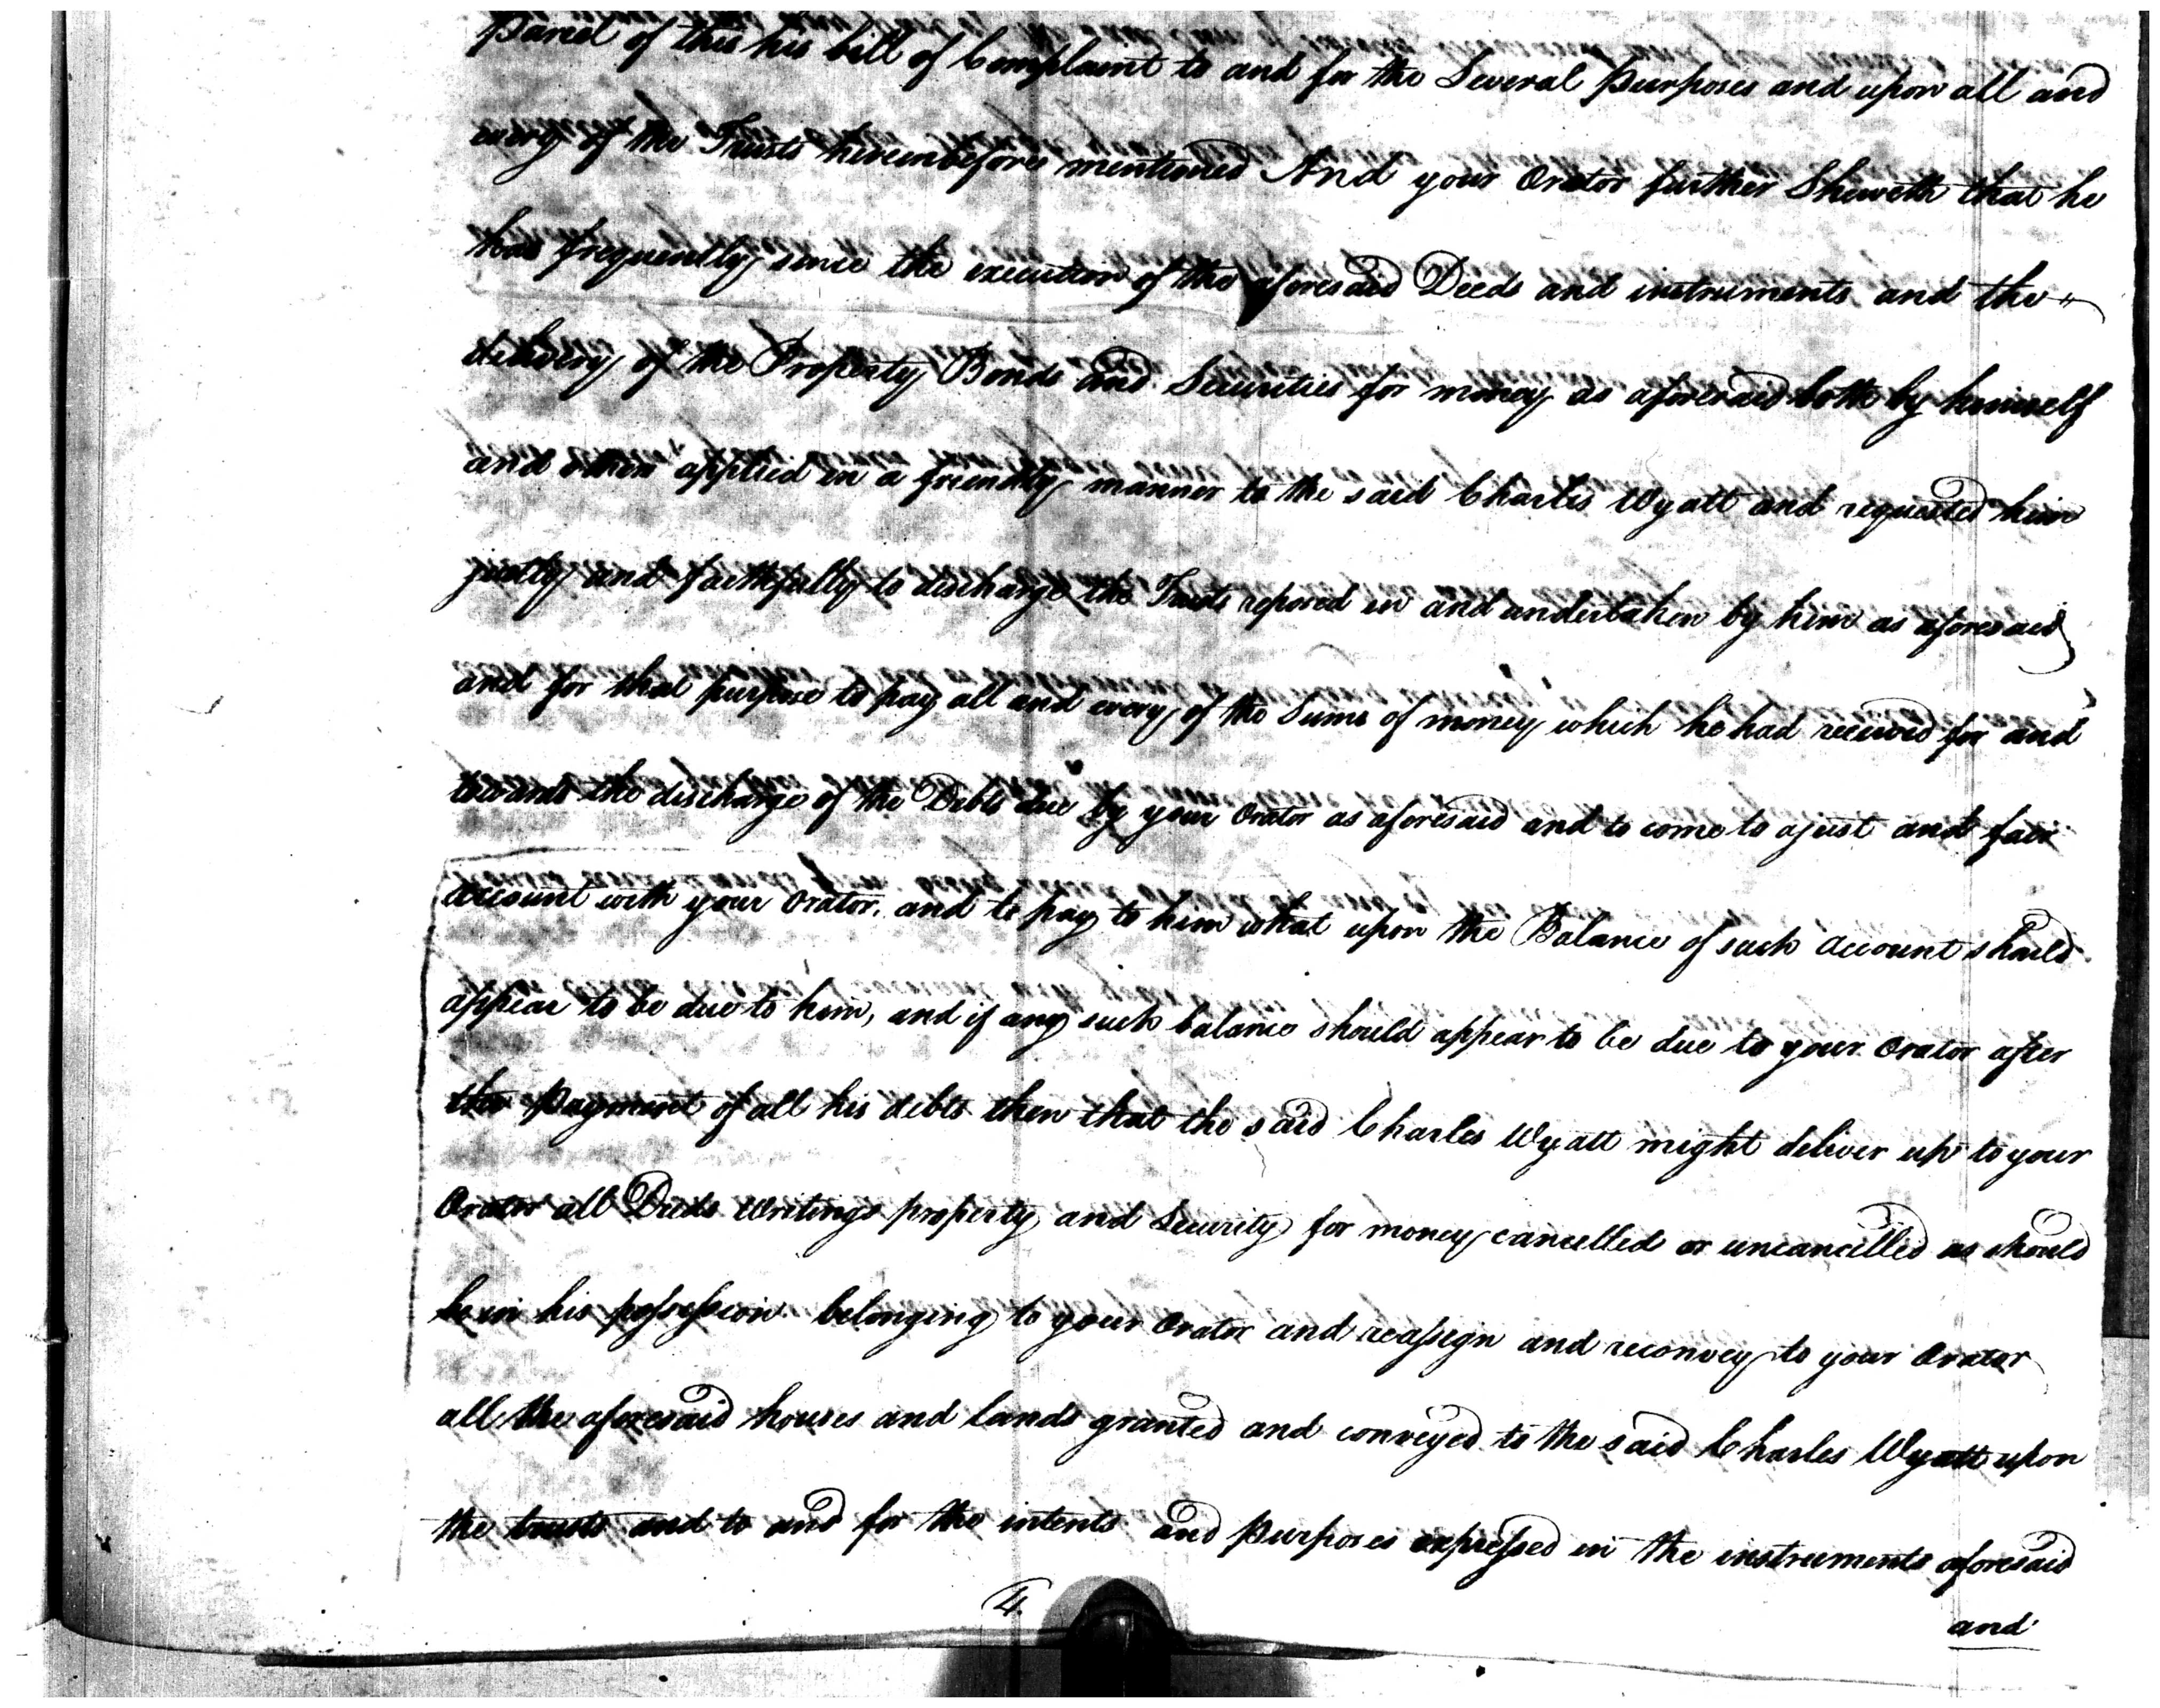 Parcel of this his bill of Complaint to and for the Several Purposes and upon all and
every of the Trusts hereinbefore mentioned And your Orator further Sheweth that he
has frequently since the execution of the aforesaid Deeds and instruments and the
delivery of the Property Bonds and Securities for money as aforesaid both by himself
and others applied in a friendly manner to the said Charles Wyatt and requested him
justly and faithfully to discharge the Trusts reposed in and undertaken by him as aforesaid
and for that purpose to pay all and every of the Sums of money which he had received for and
towards the discharge of the Debts due by your Orator as aforesaid and to come to a just and fair
account with your Orator. and to pay to him what upon the Balance of such account should
appear to be due to him, and if any such balance should appear to be due to your Orator after
the Payment of all his debts then that the said Charles Wyatt might deliver up to your
Orator all Deeds Writings property and Security for money cancelled or uncancelled as should
be in his possession belonging to your Orator and reassign and reconvey to your Orator
all the aforesaid houses and lands granted and conveyed to the said Charles Wyatt upon
the trusts and to and for the intents and Purposes expressed in the instruments aforesaid
4.
and